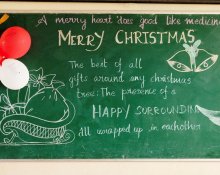 A merry heart does good like medicine
MERRY CHRISTMAS
The best of all
gifts around any christmas
tree: The presence of a
HAPPY SURROUNDIN
all wrapped up in eachother